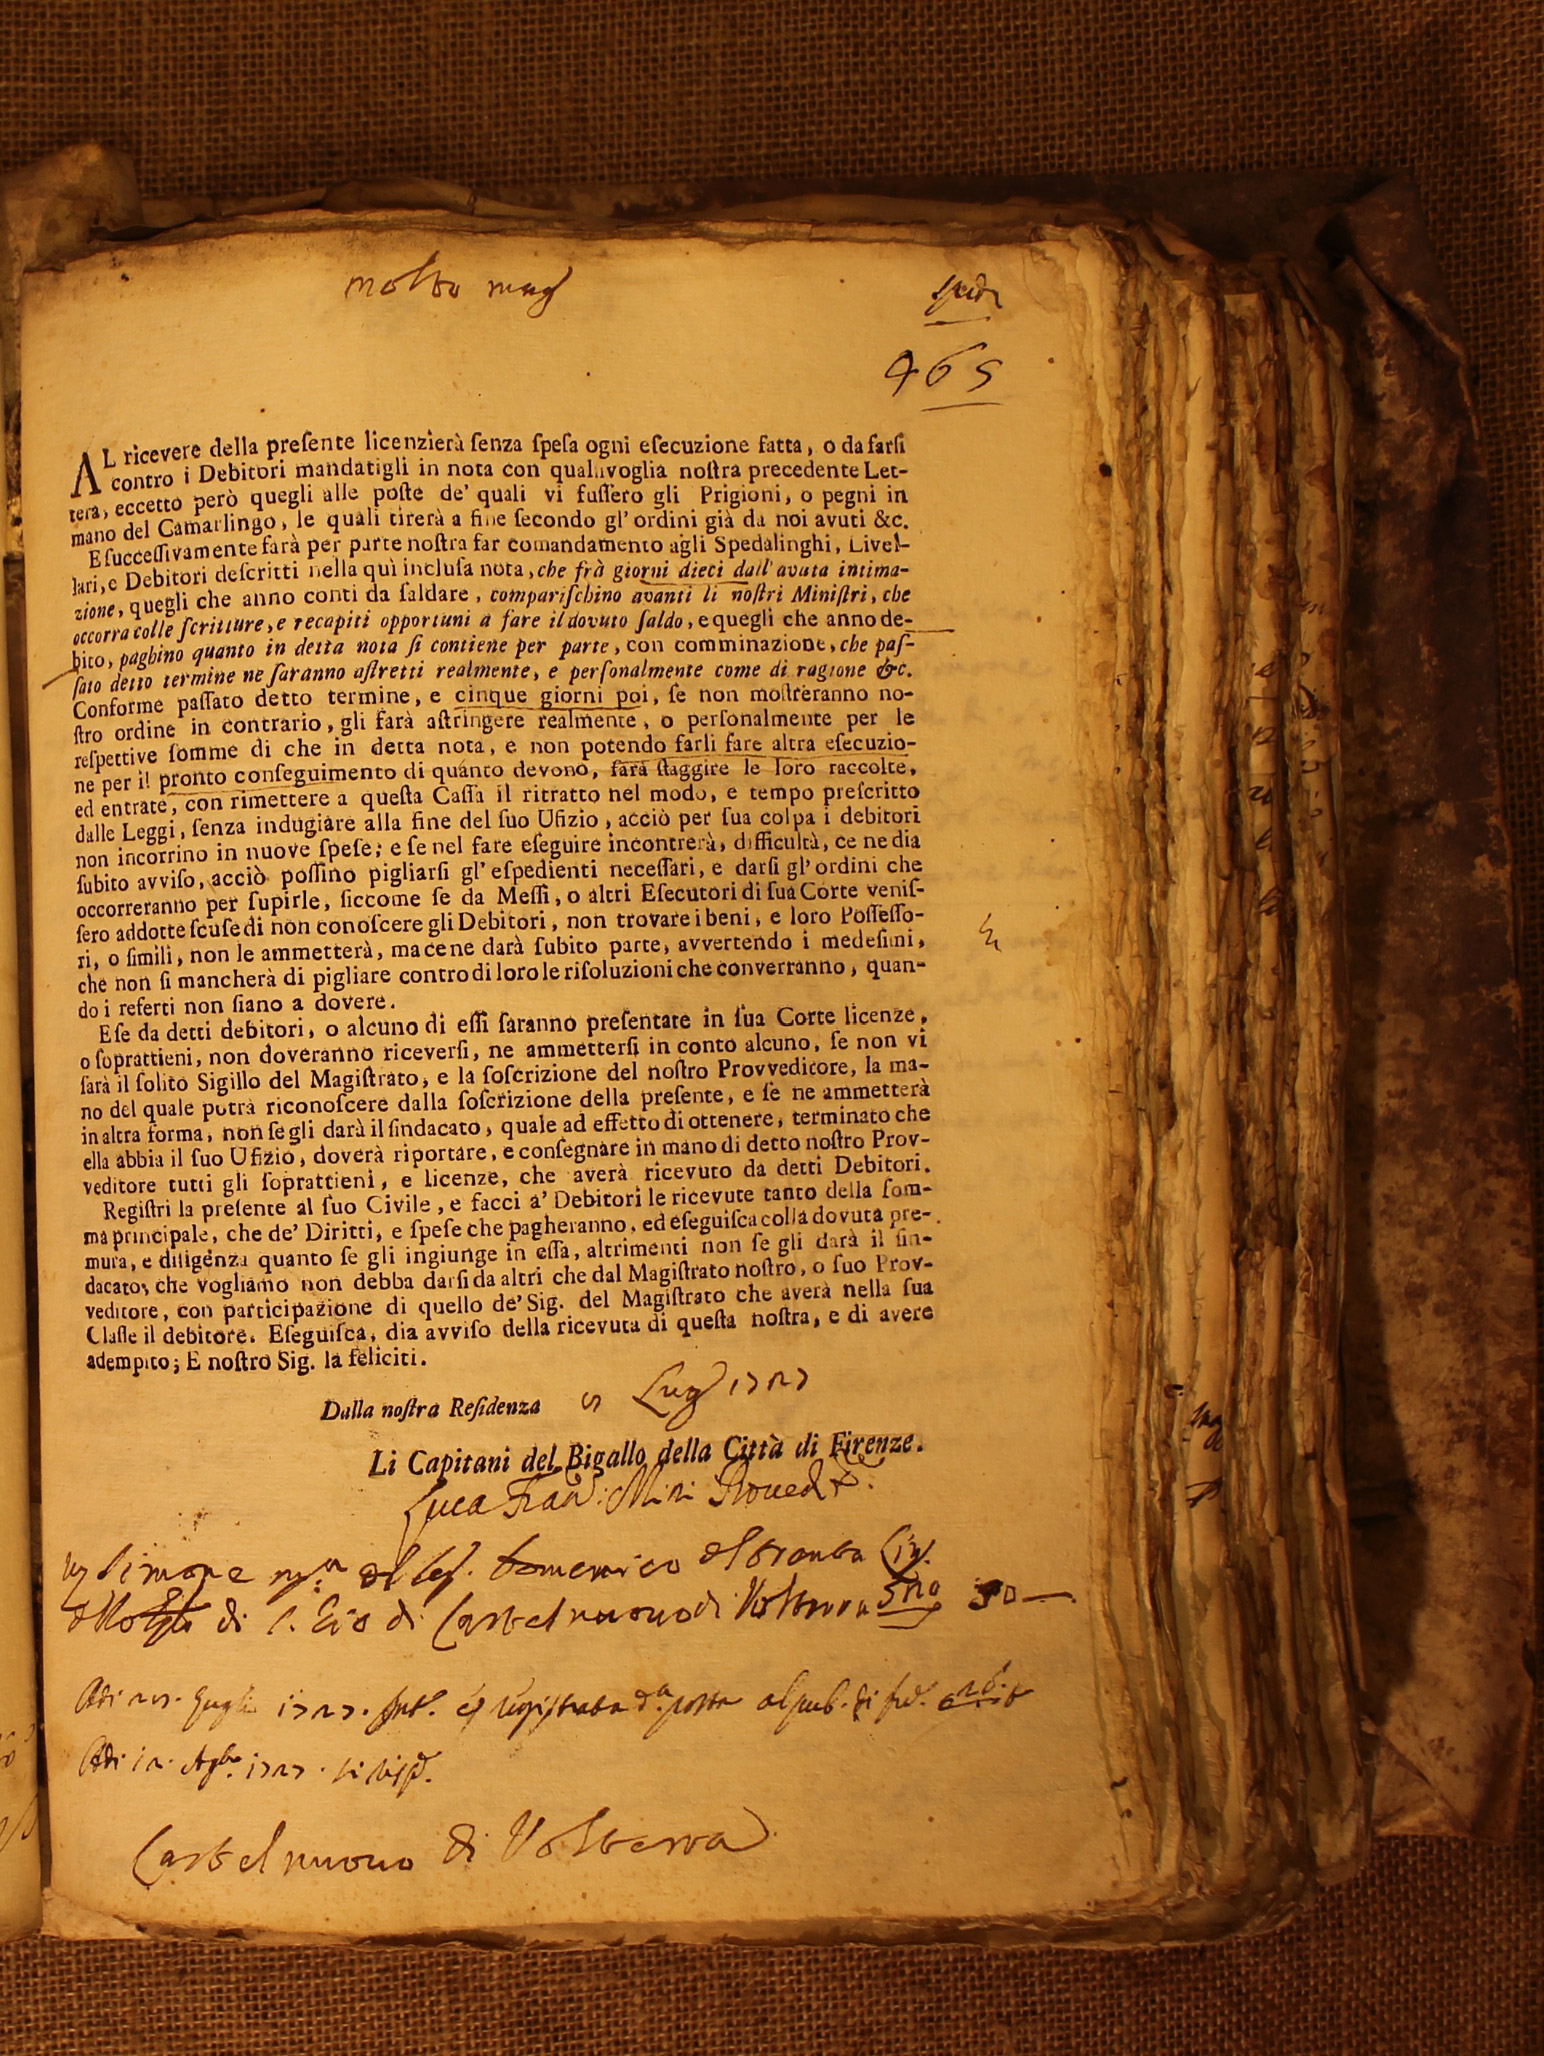 molto mag
465
AL ricevere della preſente licenzierà ſenza ſpeſa ogni eſecuzione fatta, o da farſi
contro i Debitori mandatigli in nota con qualſivoglia noſtra precedente Let-
tera, eccetto però quegli alle poſte de' quali vi fuſſero gli Prigioni, o pegni in
mano del Camarlingo, le quali tirerà a fine ſecondo gl' ordini già da noi avuti &c.
E ſucceſſivamente farà per parte noſtra far comandamento agli Spedalinghi, Livel-
lari, e Debitori deſcritti nella quì incluſa nota, che frà giorni dieci dall' avuta intima-
zione, quegli che anno conti da ſaldare, compariſchino avanti li noſtri Miniſtri, che
occorra colle ſcritture, e recapiti opportuni a fare il dovuto ſaldo, e quegli che anno de-
bito, paghino quanto in detta nota ſi contiene per parte, con comminazione, che paſ-
ſato detto termine ne ſaranno aſtretti realmente, e perſonalmente come di ragione &c.
Conforme paſſato detto termine, e cinque giorni poi, ſe non moſtreranno no-
ſtro ordine in contrario, gli farà aſtringere realmente, o perſonalmente per le
reſpettive ſomme di che in detta nota, e non potendo farli fare altra eſecuzio-
ne per il pronto conſeguimento di quanto devono, farà ſtaggire le loro raccolte,
ed entrate, con rimettere a queſta Caſſa il ritratto nel modo, e tempo preſcritto
dalle Leggi, ſenza indugiare alla fine del ſuo Ufizio, acciò per ſua colpa i debitori
non incorrino in nuove ſpeſe; e ſe nel fare eſeguire incontrerà, difficultà, ce ne dia
ſubito avviſo, acciò poſſino pigliarſi gl' eſpedienti neceſſari, e darſi gl' ordini che
occorreranno per ſupirle, ſiccome ſe da Meſſi, o altri Eſecutori di ſua Corte veniſ-
ſero addotte ſcuſe di non conoſcere gli Debitori, non trovare i beni, e loro Poſſeſſo-
ri, o ſimili, non le ammetterà, ma ce ne darà ſubito parte, avvertendo i medeſimi,
che non ſi mancherà di pigliare contro di loro le riſoluzioni che converranno, quan-
do i referti non ſiano a dovere.
E ſe da detti debitori, o alcuno di eſſi ſaranno preſentate in ſua Corte licenze,
o ſoprattieni, non doveranno riceverſi, ne ammetterſi in conto alcuno, ſe non vi
ſarà il ſolito Sigillo del Magiſtrato, e la ſoſcrizione del noſtro Provveditore, la ma-
no del quale potrà riconoſcere dalla ſoſcrizione della preſente, e ſe ne ammetterà
in altra forma, non ſe gli darà il ſindacato, quale ad effetto di ottenere, terminato che
ella abbia il ſuo Ufizio, doverà riportare, e conſegnare in mano di detto noſtro Prov-
veditore tutti gli ſoprattieni, e licenze, che averà ricevuto da detti Debitori.
Regiſtri la preſente al ſuo Civile, e facci a' Debitori le ricevute tanto della ſom-
ma principale, che de' Diritti, e ſpeſe che pagheranno, ed eſeguiſca colla dovuta pre-
mura, e diligenza quanto ſe gli ingiunge in eſſa, altrimenti non ſe gli darà il ſin-
dacato, che vogliamo non debba darſi da altri che dal Magiſtrato noſtro, o ſuo Prov-
veditore, con participazione di quello de' Sig. del Magiſtrato che averà nella ſua
Claſſe il debitore. Eſeguiſca, dia avviſo della ricevuta di queſta noſtra, e di avere
adempito; E noſtro Sig. la feliciti.
Dalla noſtra Reſidenza Lug 1727
Li Capitani del Bigallo della Città di Firenze.
Luca Fran: Mini Proved.
Simone domenico
di S. di Castelnuovo di Volterra 50
Adi 1727. registrata posta al
Adi 1727.
Castelnuovo di Volterra